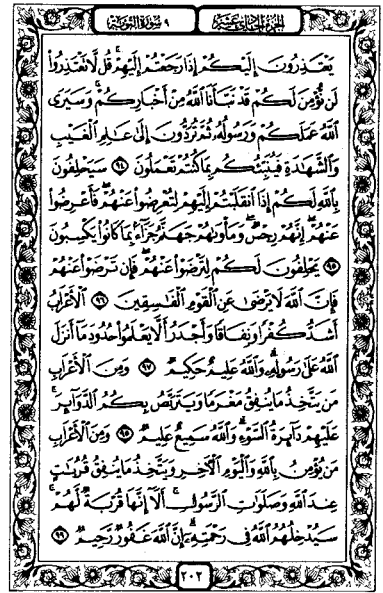 الجزء الحادي عشر ٩ سورة التوبة
يَعْتَذِرُونَ إِلَيْكُمْ إِذَا رَجَعْتُمْ إِلَيْهِمْ ۚ قُل لَّا تَعْتَذِرُوا۟
لَن نُّؤْمِنَ لَكُمْ قَدْ نَبَّأَنَا ٱللَّهُ مِنْ أَخْبَارِكُمْ ۚ وَسَيَرَى
ٱللَّهُ عَمَلَكُمْ وَرَسُولُهُۥ ثُمَّ تُرَدُّونَ إِلَىٰ عَـٰلِمِ ٱلْغَيْبِ
وَٱلشَّهَـٰدَةِ فَيُنَبِّئُكُم بِمَا كُنتُمْ تَعْمَلُونَ ٩٤ سَيَحْلِفُونَ
بِٱللَّهِ لَكُمْ إِذَا ٱنقَلَبْتُمْ إِلَيْهِمْ لِتُعْرِضُوا۟ عَنْهُمْ ۖ فَأَعْرِضُوا۟
عَنْهُمْ ۖ إِنَّهُمْ رِجْسٌ ۖ وَمَأْوَىٰهُمْ جَهَنَّمُ جَزَآءًۢ بِمَا كَانُوا۟ يَكْسِبُونَ
٩٥ يَحْلِفُونَ لَكُمْ لِتَرْضَوْا۟ عَنْهُمْ ۖ فَإِن تَرْضَوْا۟ عَنْهُمْ
فَإِنَّ ٱللَّهَ لَا يَرْضَىٰ عَنِ ٱلْقَوْمِ ٱلْفَـٰسِقِينَ ٩٦ ٱلْأَعْرَابُ
أَشَدُّ كُفْرًا وَنِفَاقًا وَأَجْدَرُ أَلَّا يَعْلَمُوا۟ حُدُودَ مَآ أَنزَلَ
ٱللَّهُ عَلَىٰ رَسُولِهِۦ ۗ وَٱللَّهُ عَلِيمٌ حَكِيمٌ ٩٧ وَمِنَ ٱلْأَعْرَابِ
مَن يَتَّخِذُ مَا يُنفِقُ مَغْرَمًا وَيَتَرَبَّصُ بِكُمُ ٱلدَّوَآئِرَ ۚ
عَلَيْهِمْ دَآئِرَةُ ٱلسَّوْءِ ۗ وَٱللَّهُ سَمِيعٌ عَلِيمٌ ٩٨ وَمِنَ ٱلْأَعْرَابِ
مَن يُؤْمِنُ بِٱللَّهِ وَٱلْيَوْمِ ٱلْـَٔاخِرِ وَيَتَّخِذُ مَا يُنفِقُ قُرُبَـٰتٍ
عِندَ ٱللَّهِ وَصَلَوَٰتِ ٱلرَّسُولِ ۚ أَلَآ إِنَّهَا قُرْبَةٌ لَّهُمْ ۚ
سَيُدْخِلُهُمُ ٱللَّهُ فِى رَحْمَتِهِۦٓ ۗ إِنَّ ٱللَّهَ غَفُورٌ رَّحِيمٌ ٩٩
٢٠٢